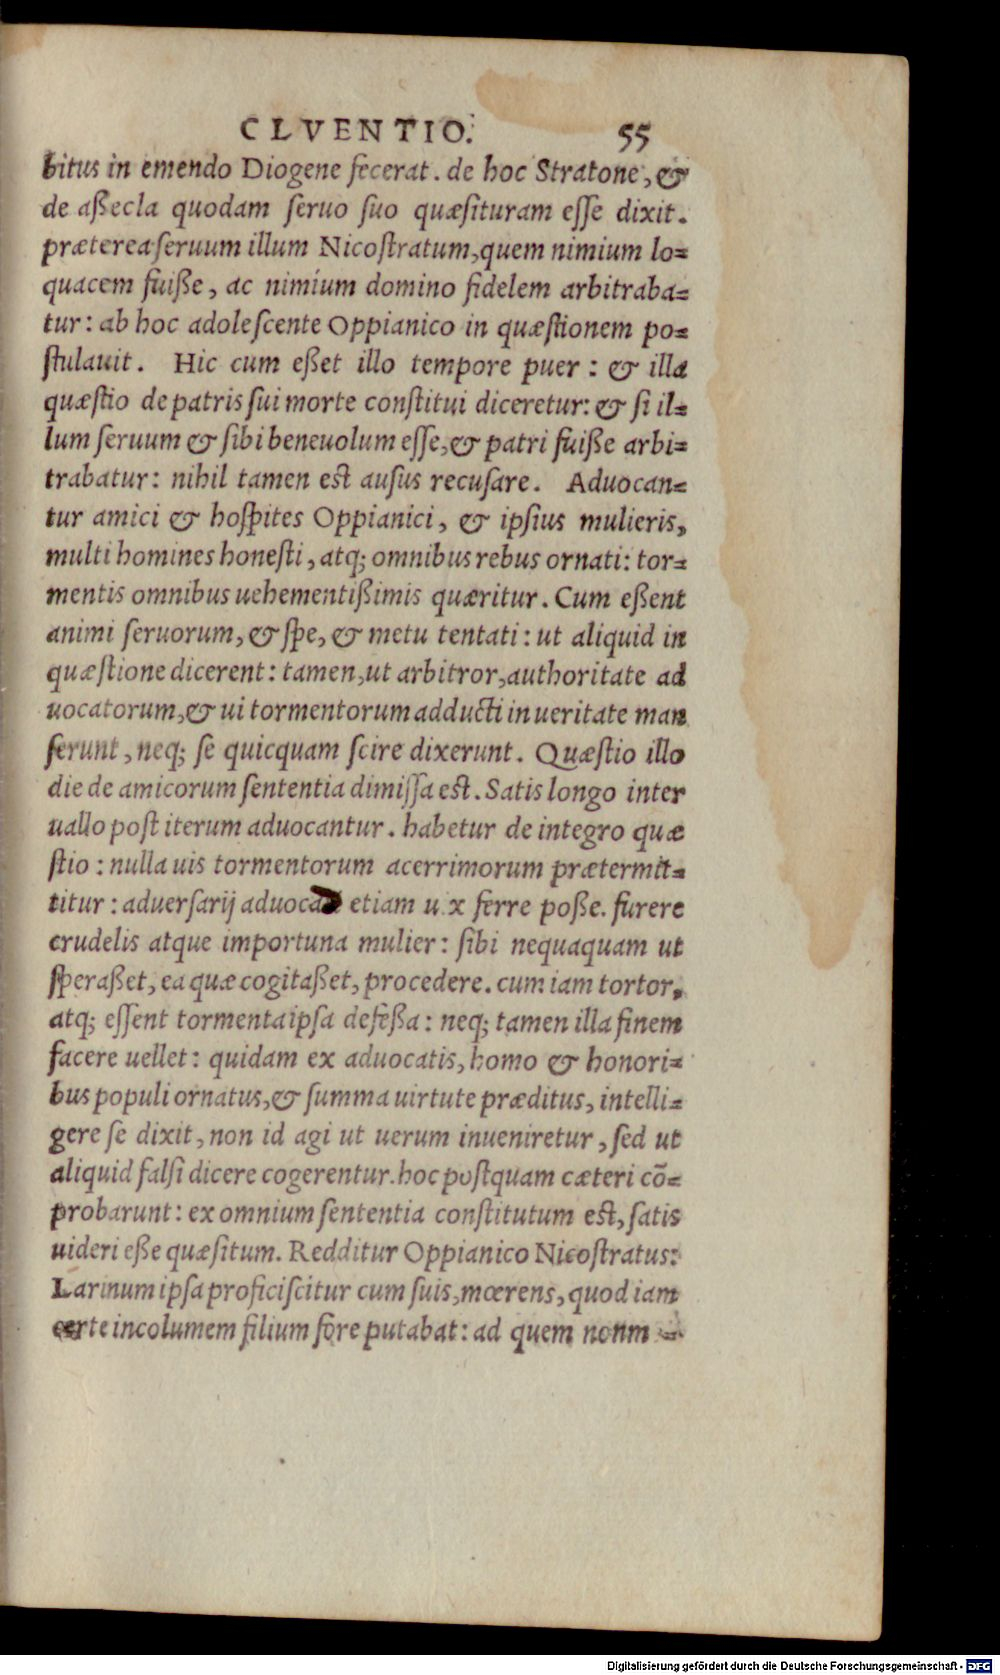 CLVENTIO. 55
bitus in emendo Diogene fecerat. de hoc Stratone, &
de aßecla quodam ſeruo ſuo quæſituram eſſe dixit.
præterea ſeruum illum Nicoſtratum, quem nimium lo=
quacem fuiße, ac nimíum domino fidelem arbitraba=
tur: ab hoc adoleſcente Oppianico in quæſtionem po=
ſtulauit. Hic cum eßet illo tempore puer: & illa
quæſtio de patris ſui morte conſtitui diceretur: & ſi il=
lum ſeruum & ſibi beneuolum eſſe, & patri fuiße arbi=
trabatur: nihil tamen eſt auſus recuſare. Aduocan=
tur amici & hoſpites Oppianici, & ipſius mulieris,
multi homines honeſti, atq; omnibus rebus ornati: tor=
mentis omnibus uehementißimis quæritur. Cum eßent
animi ſeruorum, & ſpe, & metu tentati: ut aliquid in
quæſtione dicerent: tamen, ut arbitror, authoritate ad
uocatorum, & ui tormentorum adducti in ueritate man
ſerunt, neq; ſe quicquam ſcire dixerunt. Quæſtio illo
die de amicorum ſententia dimiſſa eſt. Satis longo inter
uallo poſt iterum aduocantur. habetur de integro quæ
ſtio: nulla uis tormentorum acerrimorum prætermit=
titur: aduerſarij etiam u x ferre poße. furere
crudelis atque importuna mulier: ſibi nequaquam ut
ſperaßet, ea quæ cogitaßet, procedere. cum iam tortor,
atq; eſſent tormenta ipſa defeßa: neq; tamen illa finem
facere uellet: quidam ex aduocatis, homo & honori=
bus populi ornatus, & ſumma uirtute præditus, intelli=
gere ſe dixit, non id agi ut uerum inueniretur, ſed ut
aliquid falſi dicere cogerentur. hoc poſtquam cæteri cõ=
probarunt: ex omnium ſententia conſtitutum eſt, ſatis
uideri eße quæſitum. Redditur Oppianico Nicoſtratus:
Larinum ipſa proficiſcitur cum ſuis, mœrens, quod iam
certe incolumem filium fore putabat: ad quem nonm =
Digitalisierung gefördert durch die Deutsche Forschungsgemeinschaft - DFG